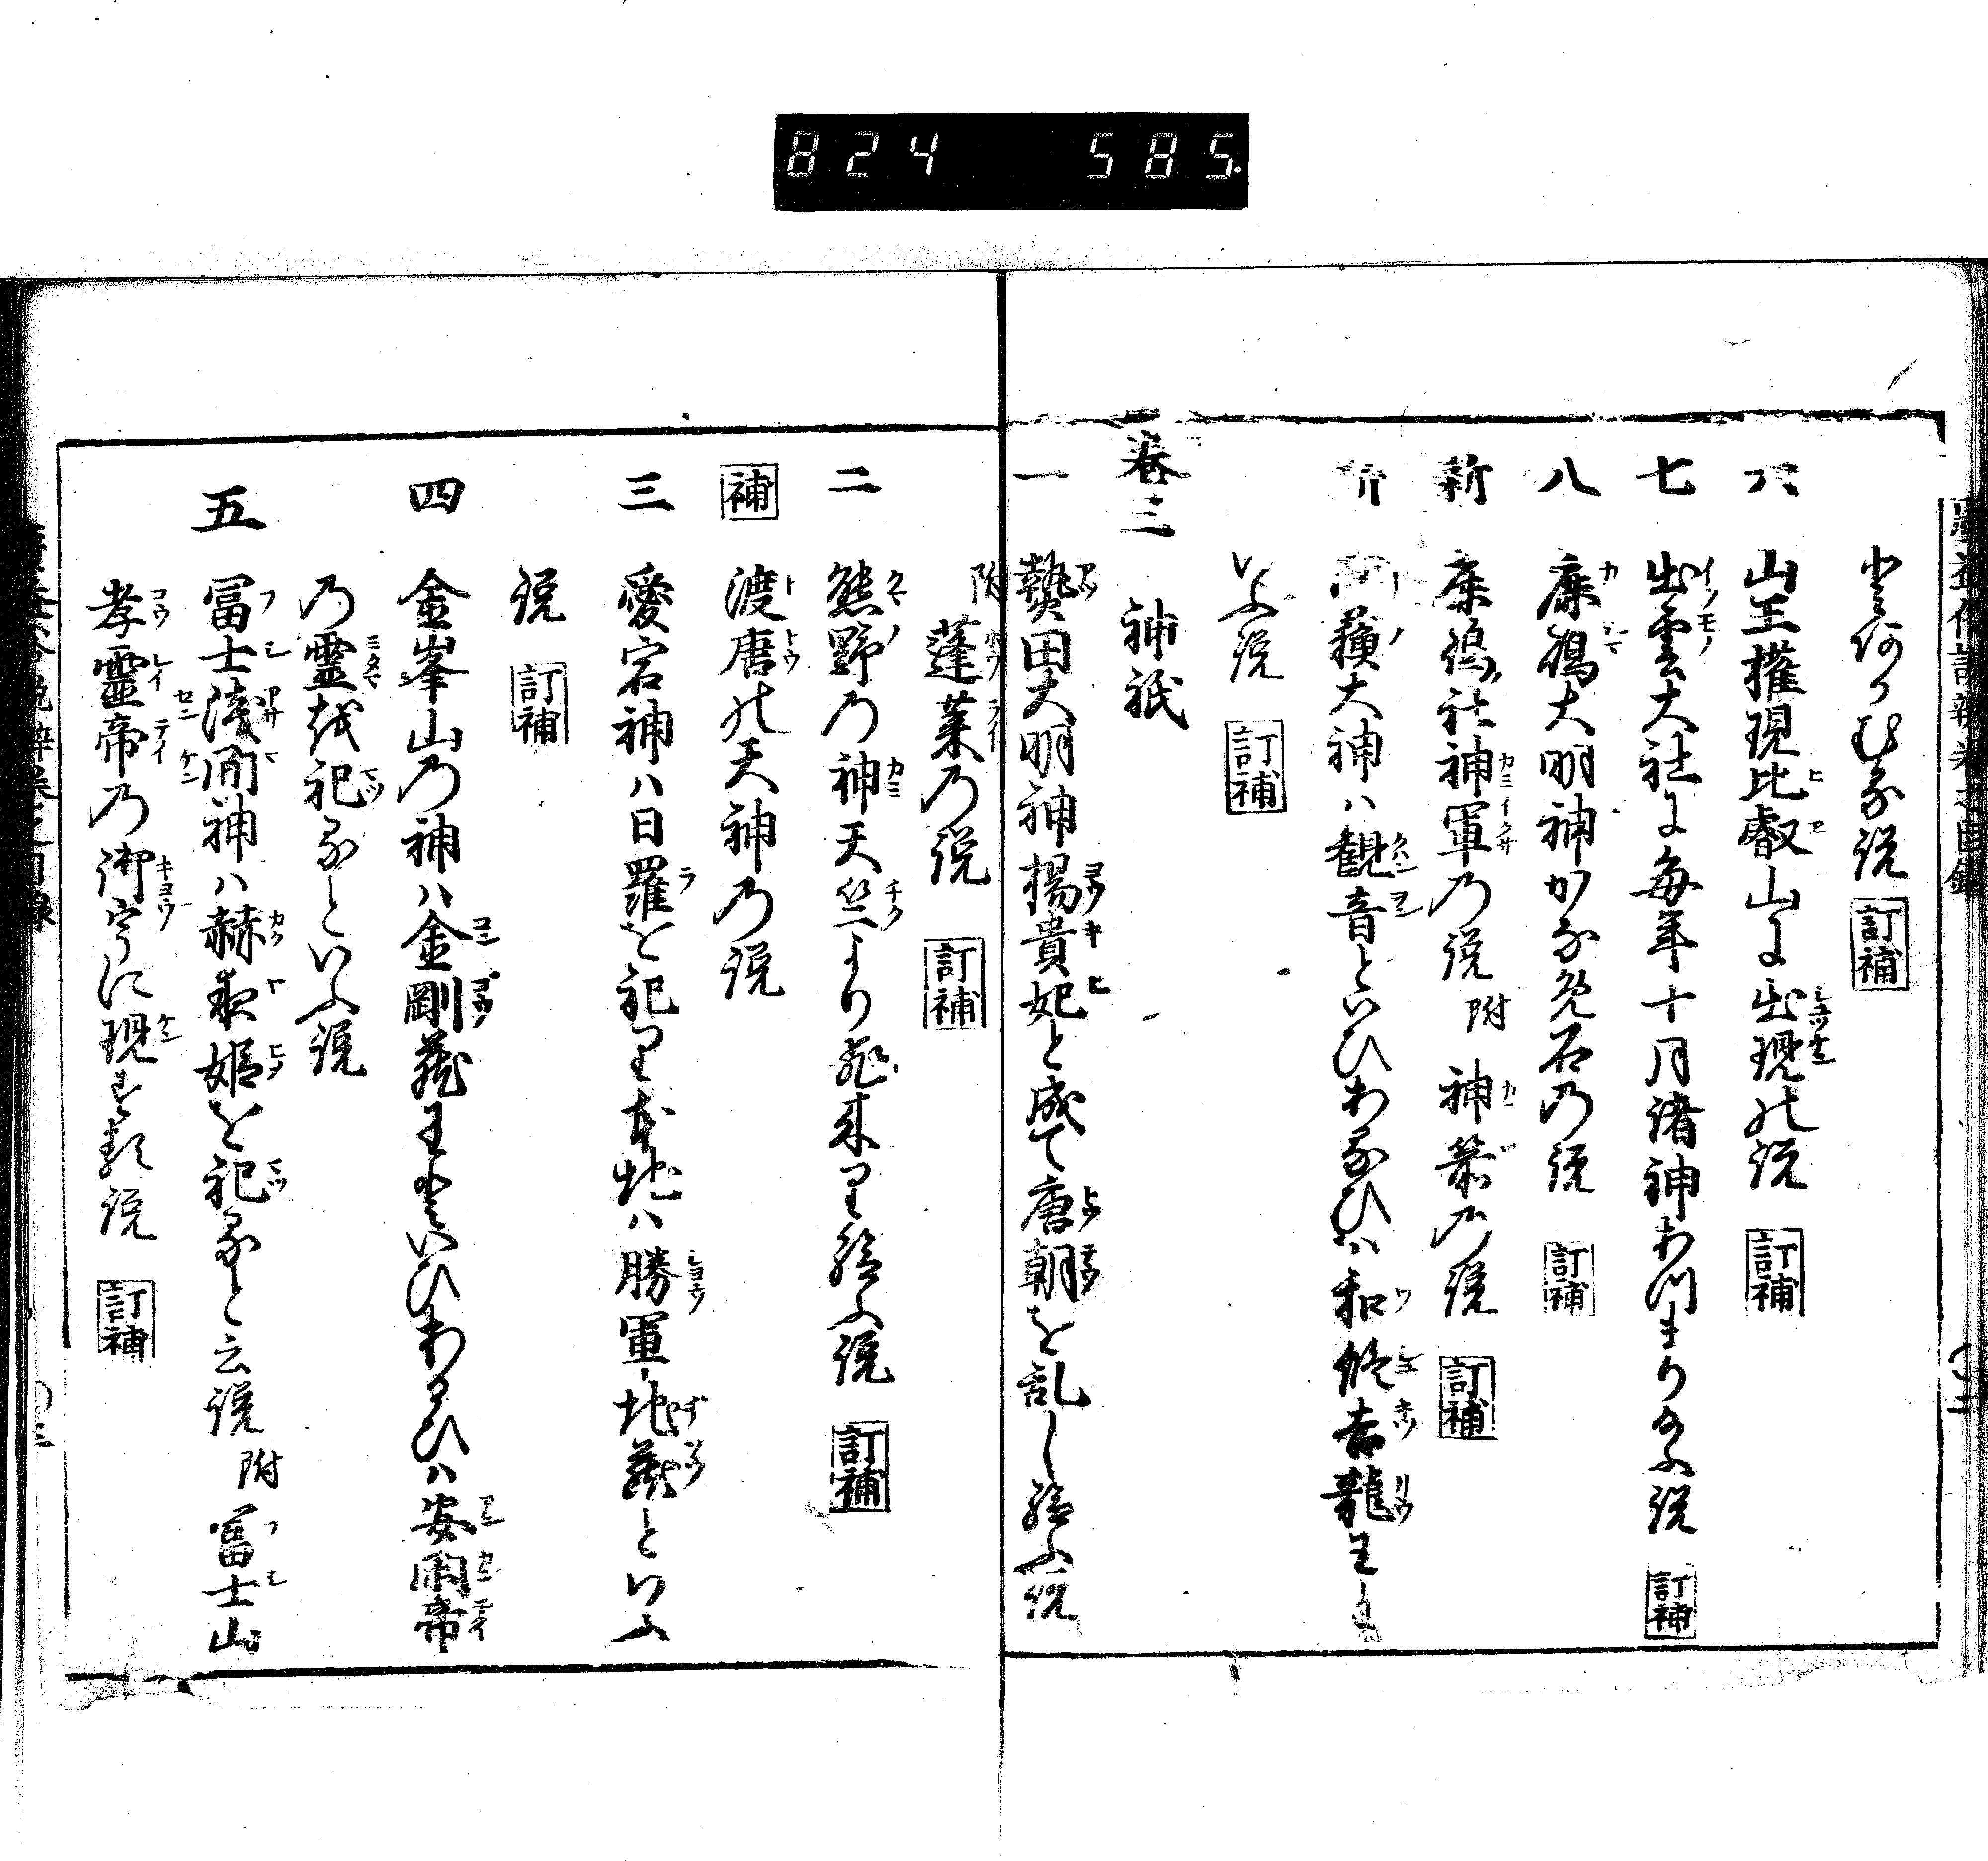 824 585
とあつむる説 訂補
六 山王権現比叡山に出現の説 訂補
七 出雲大社に毎年十月諸神あつまり給ふ説 訂補
八 鹿嶋大明神かなめ石乃説 訂補
新 鹿嶋社神軍乃説 附 神箭乃説 訂補
新 阿蘇大神ハ観音といひあるひハ和修吉龍王と
いふ説 訂補
巻三 神祇
一 熱田大明神楊貴妃と成て唐朝を乱し給ふ説
附 蓬莱乃説 訂補
二 熊野乃神天竺より飛来り給ふ説 訂補
補 渡唐の天神乃説
三 愛宕神ハ日羅を祀り本地ハ勝軍地蔵といふ
説 訂補
四 金峯山乃神ハ金剛蔵王といひあるひハ安閑帝
乃霊を祀るといふ説
五 冨士浅間神ハ赫夜姫を祀ると云説 附 冨士山
孝霊帝乃御宇に現するの説 訂補